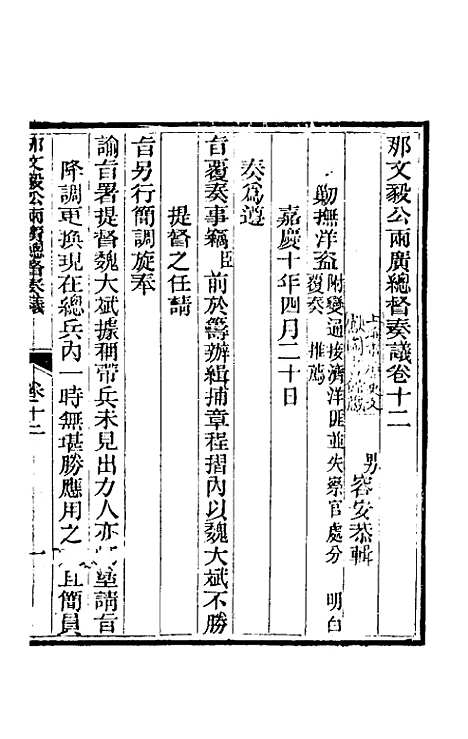 那文毅公兩廣總督奏議卷十二
男容安恭輯
勦撫洋盜 附變通接濟洋匪並失察官處分 明白覆奏 推薦
嘉慶十年四月二十日
奏爲遵
旨覆奏事竊臣前於籌辦緝捕章程摺內以魏大斌不勝
提督之任請
旨另行簡調旋奉
諭旨署提督魏大斌據稱帶兵未見出力人亦 請旨
降調更換現在總兵內一時無堪勝應用之 且簡員
那文毅公兩廣總督奏議
卷十二
一